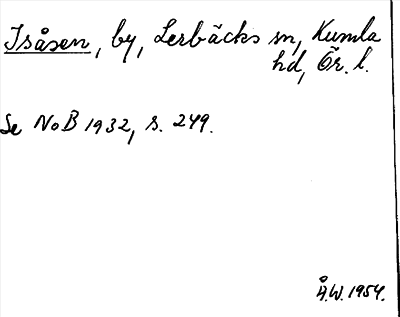 Isåsen, by, Lerbäcks sn, Kumla
hd, Ör. l.
Se NoB 1932, s. 249.
Å.W. 1954.